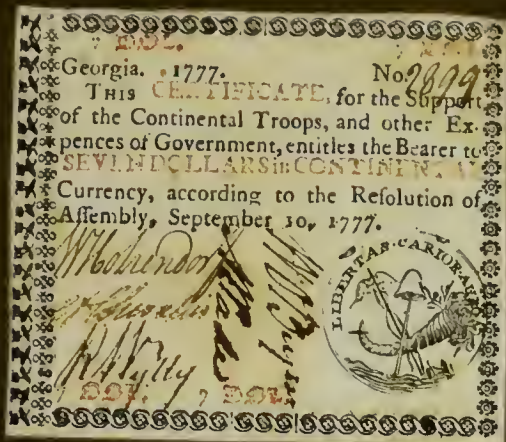 7 DOL.
Georgia. 1777. No. 2899
THIS CERTIFICATE, for the Support
of the Continental Troops, and other Ex-
pences of Government, entitles the Bearer to
SEVEN DOLLARS in CONTINENTAL
Currency, according to the Resolution of
Assembly, September 10, 1777.
LIBERTAS CARIOR AURO
W Holzendorf
R Wylly
7 DOL. 7 DOL.